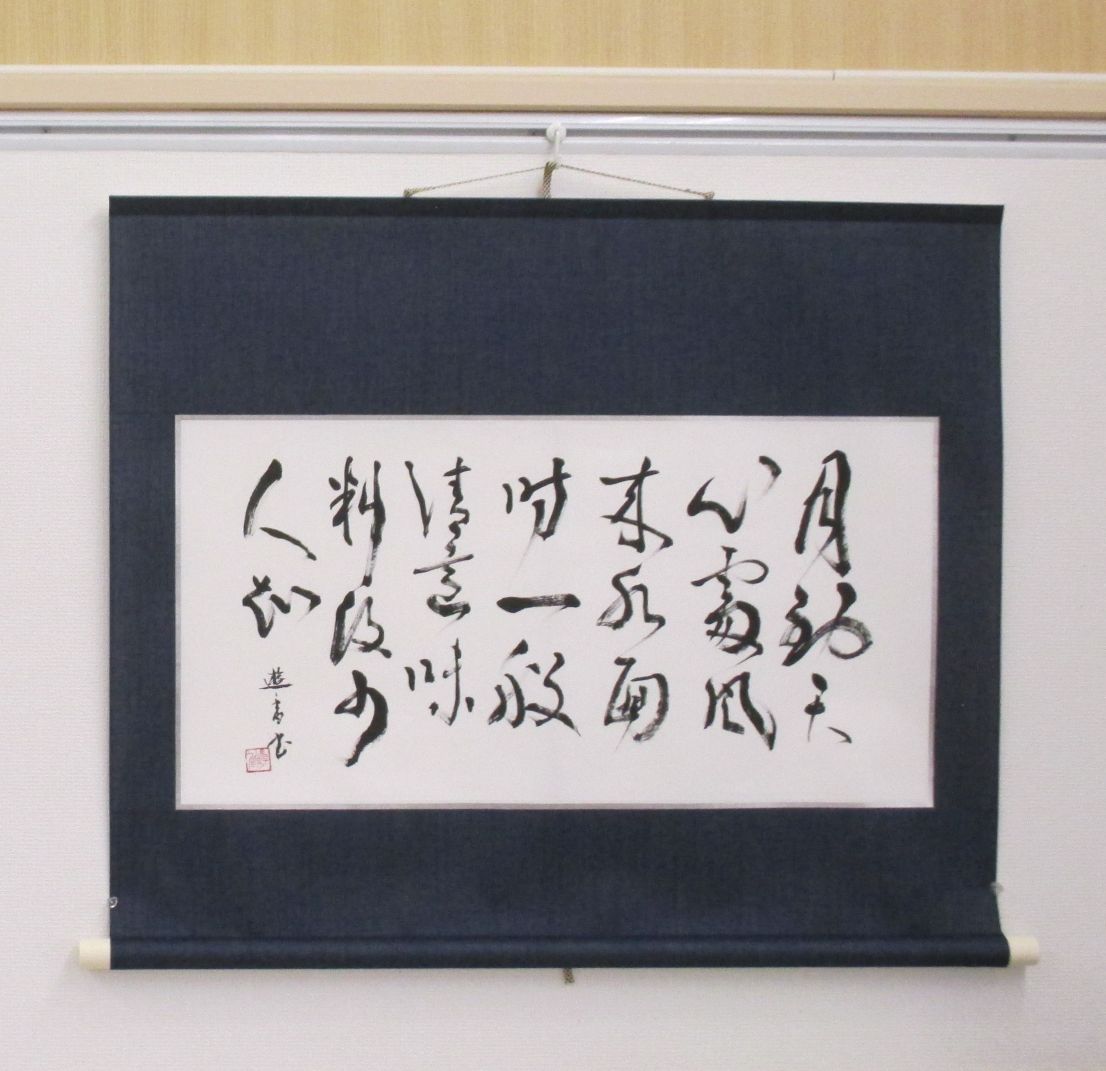 月到天
心處風
来水面
時一般
清意味
料得少
人知
遊書